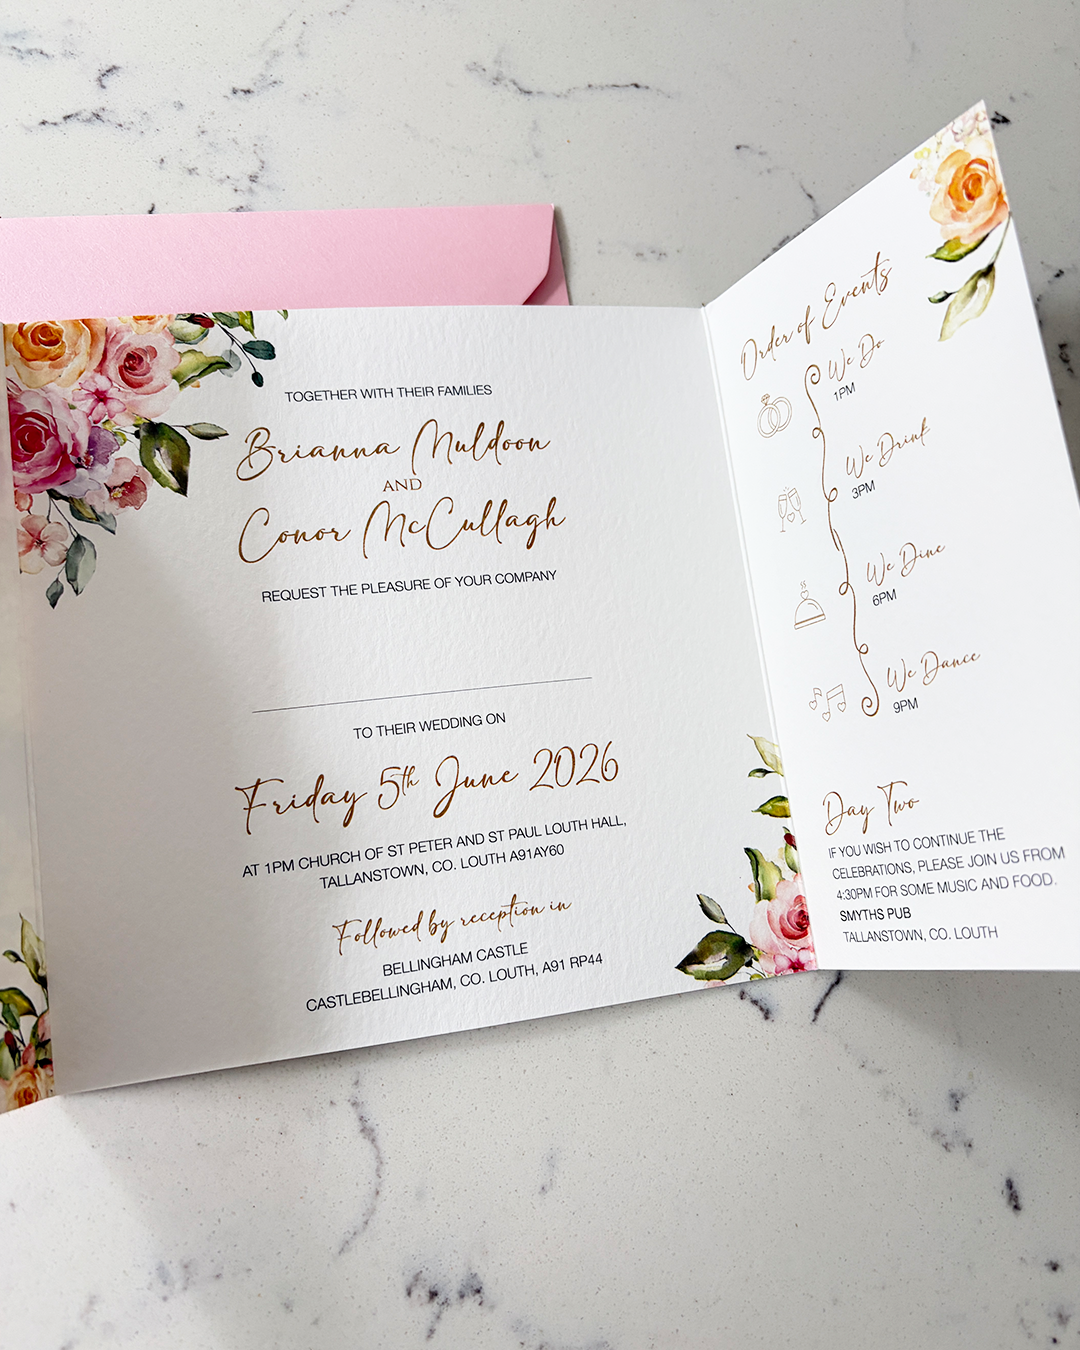 TOGETHER WITH THEIR FAMILIES
Brianna Muldoon
AND
Conor McCullagh
REQUEST THE PLEASURE OF YOUR COMPANY
TO THEIR WEDDING ON
Friday 5th June 2026
AT 1PM CHURCH OF ST PETER AND ST PAUL LOUTH HALL,
TALLANSTOWN, CO. LOUTH A91AY60
Followed by reception in
BELLINGHAM CASTLE
CASTLEBELLINGHAM, CO. LOUTH, A91 RP44
Order of Events
We Do
1PM
We Drink
3PM
We Dine
6PM
We Dance
9PM
Day Two
IF YOU WISH TO CONTINUE THE
CELEBRATIONS, PLEASE JOIN US FROM
4:30PM FOR SOME MUSIC AND FOOD.
SMYTHS PUB
TALLANSTOWN, CO. LOUTH